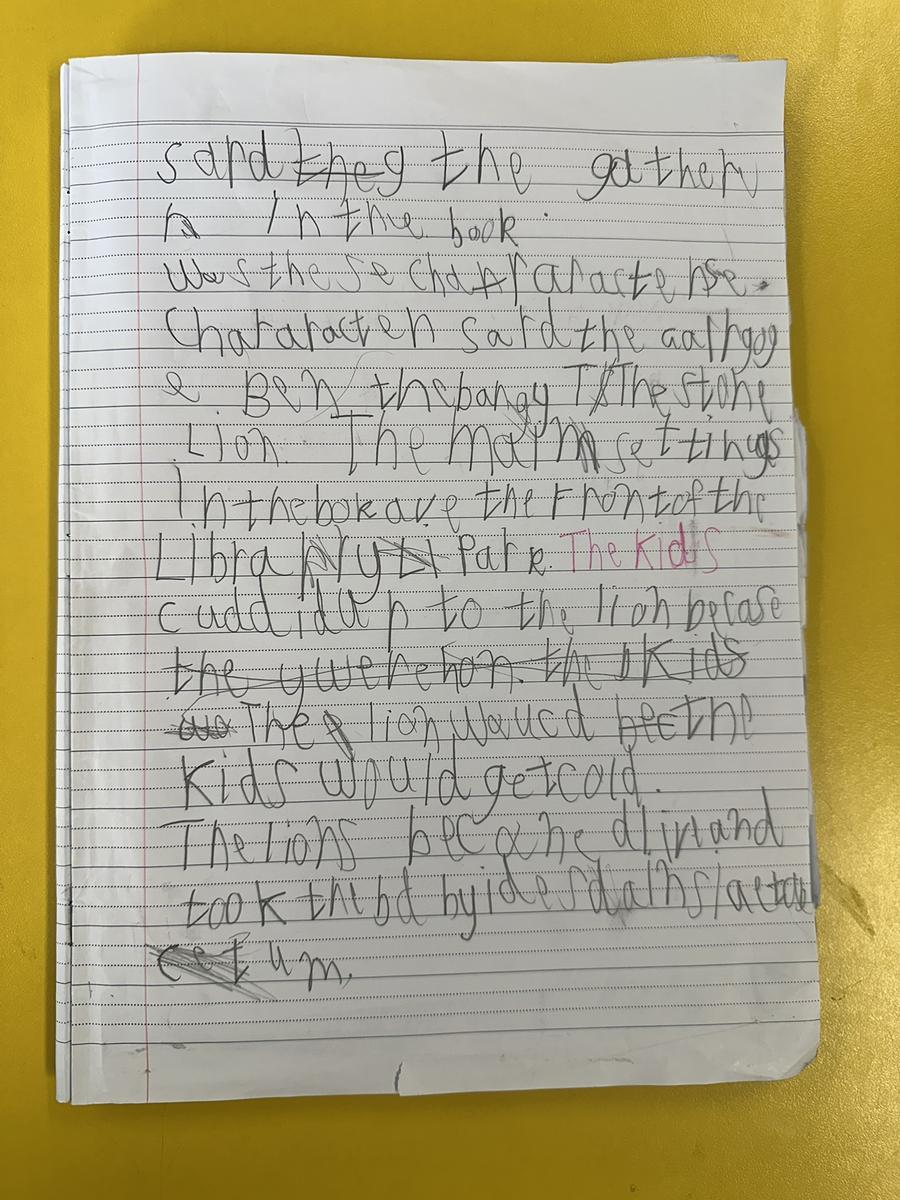 sard theg the gathen
n In the book.
was these chararactense.
Chararacten sard the aathgog
e Ben thebangy The stone
Lion. The maim settings
In thebok ave the Frontofthe
Library Park. The Kids
cuddidup to the lion becase
the ywere hon. the Kids
The lion woucd bec the
Kids would getcold.
The lions becane alivand
took the bd by
um.